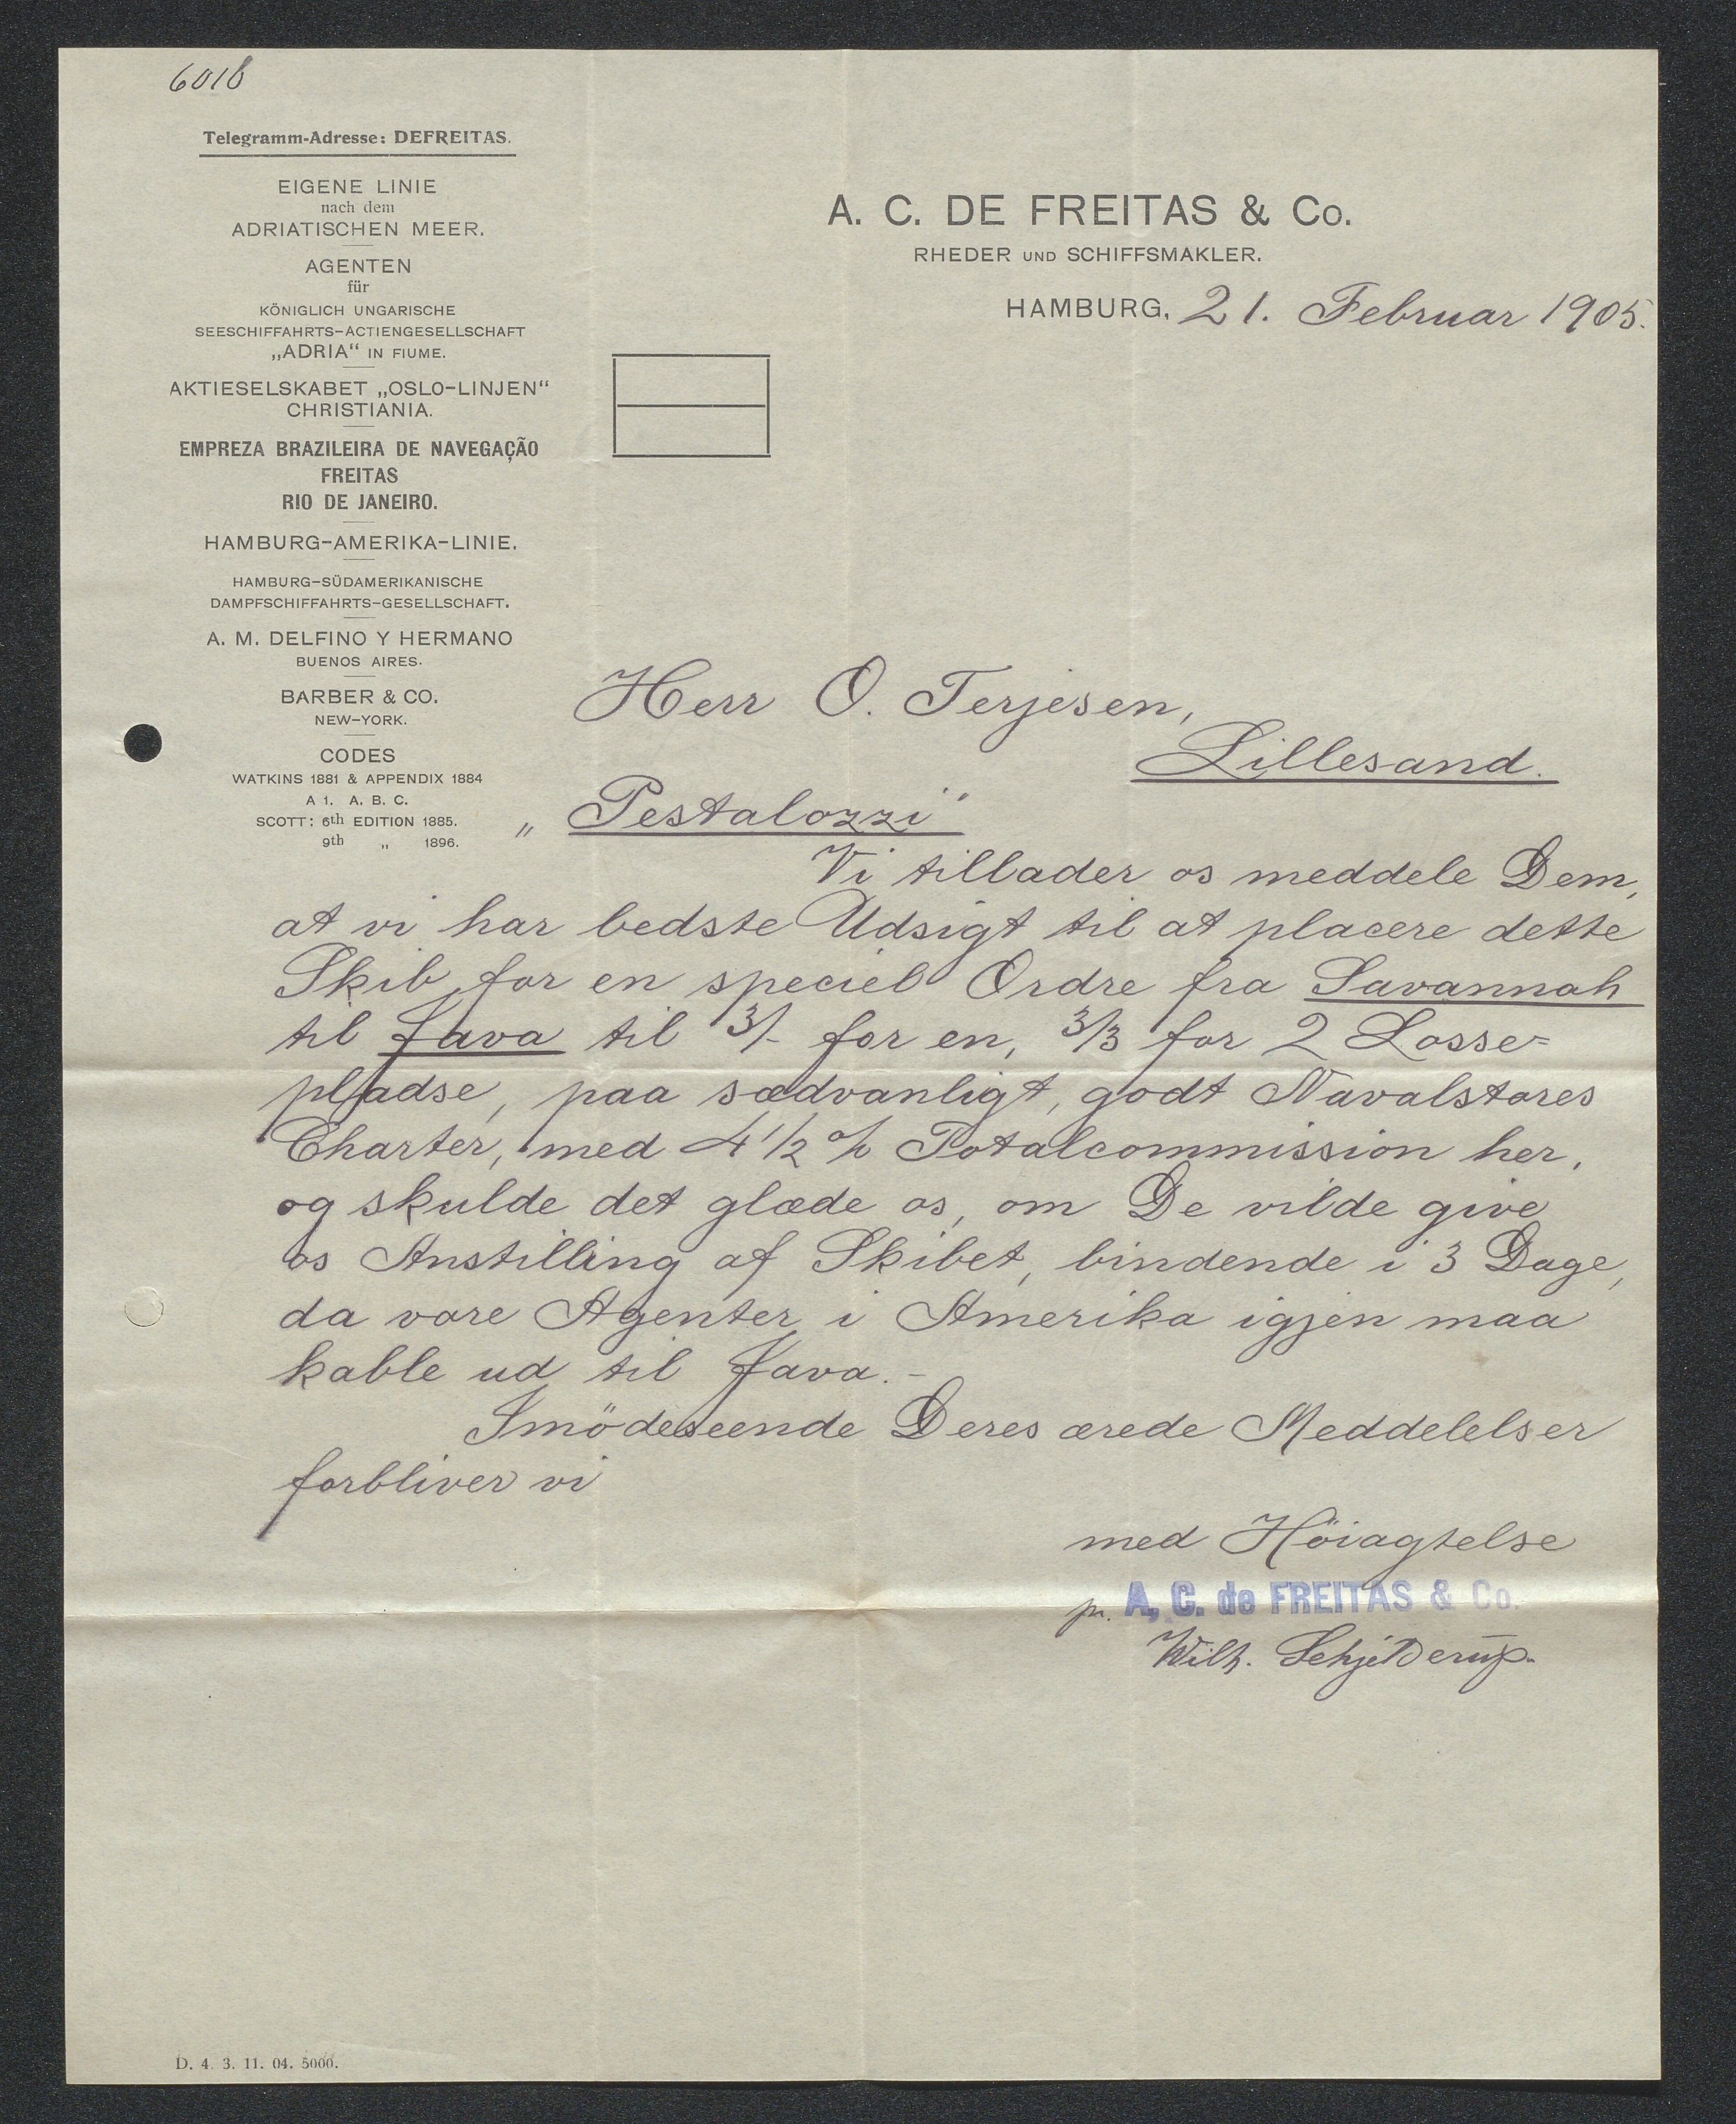 6018
Telegramm-Adresse: DEFREITAS.
EIGENE LINIE
nach dem
ADRIATISCHEN MEER.
AGENTEN
für
KÖNIGLICH UNGARISCHE
SEESCHIFFAHRTS-ACTIENGESELLSCHAFT
„ADRIA“ IN FIUME.
AKTIESELSKABET „OSLO-LINJEN“
CHRISTIANIA.
EMPREZA BRAZILEIRA DE NAVEGAÇÃO
FREITAS
RIO DE JANEIRO.
HAMBURG-AMERIKA-LINIE.
HAMBURG-SÜDAMERIKANISCHE
DAMPFSCHIFFAHRTS-GESELLSCHAFT.
A. M. DELFINO Y HERMANO
BUENOS AIRES.
BARBER & CO.
NEW-YORK.
CODES
WATKINS 1881 & APPENDIX 1884
A 1. A. B. C.
SCOTT: 6th EDITION 1885.
9th „ 1896.
A. C. DE FREITAS & Co.
RHEDER UND SCHIFFSMAKLER.
HAMBURG, 21. Februar 1905.
Herr O. Terjesen,
Lillesand.
„Pestalozzi“
Vi tillader os meddele Dem,
at vi har bedste Udsigt til at placere dette
Skib for en speciel Ordre fra Savannah
til Java til 3/- for en, 3/3 for 2 Losse=
pladse, paa sædvanligt, godt Navalstores
Charter, med 4 1/2 % Totalcommission her,
og skulde det glæde os, om De vilde give
os Anstilling af Skibet, bindende i 3 Dage,
da vore Agenter i Amerika igjen maa
kable ud til Java.-
Imödeseende Deres ærede Meddelelser
forbliver vi
med Höiagtelse
pr. A. C. de FREITAS & Co.
Wilh. Schjelderup.
D. 4. 3. 11. 04. 5000.